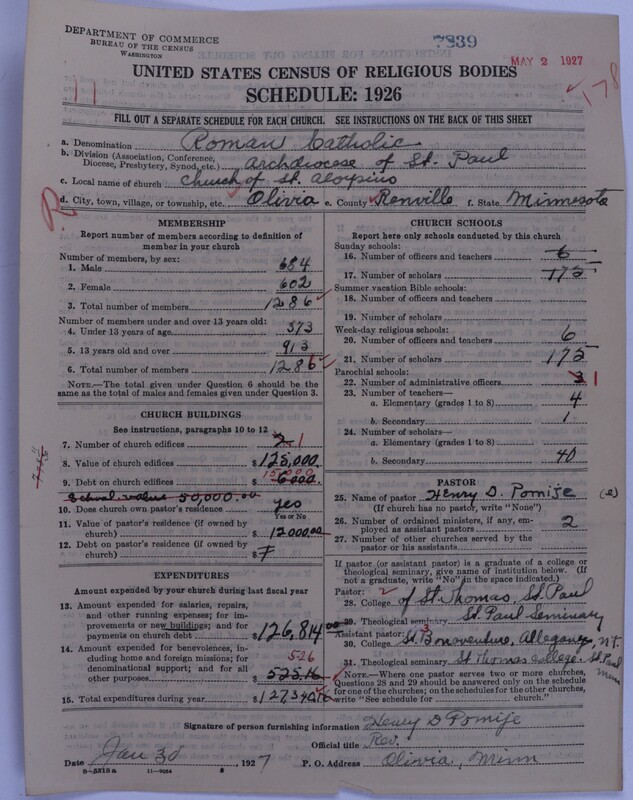 DEPARTMENT OF COMMERCE
BUREAU OF THE CENSUS
WASHINGTON
7839
MAY 2 1927
178
11
UNITED STATES CENSUS OF RELIGIOUS BODIES
SCHEDULE: 1926
FILL OUT A SEPARATE SCHEDULE FOR EACH CHURCH. SEE INSTRUCTIONS ON THE BACK OF THIS SHEET
a. Denomination Roman Catholic
b. Division (Association, Conference, Diocese, Presbytery, Synod, etc.) Archdiocese of St. Paul
c. Local name of church Church of St. Aloysius
R
d. City, town, village, or township, etc. Olivia e. County Renville f. State Minnesota
MEMBERSHIP
Report number of members according to definition of
member in your church
Number of members, by sex:
1. Male 684
2. Female 602
3. Total number of members 1286
Number of members under and over 13 years old:
4. Under 13 years of age 373
5. 13 years old and over 913
6. Total number of members 1286
NOTE.—The total given under Question 6 should be
the same as the total of males and females given under Question 3.
CHURCH BUILDINGS
See instructions, paragraphs 10 to 12
7. Number of church edifices 2 1
8. Value of church edifices $ 125,000.
9. Debt on church edifices $
School value 50,000.00
10. Does church own pastor's residence yes
Yes or No
11. Value of pastor's residence (if owned by
church) $ 12000.00
12. Debt on pastor's residence (if owned by
church) $
EXPENDITURES
Amount expended by your church during last fiscal year
13. Amount expended for salaries, repairs,
and other running expenses; for im-
provements or new buildings; and for
payments on church debt $ 126,814.00
14. Amount expended for benevolences,
including home and foreign missions; for
denominational support; and for all
other purposes 526
$ 525.16
15. Total expenditures during year $
CHURCH SCHOOLS
Report here only schools conducted by this church
Sunday schools:
16. Number of officers and teachers 6
17. Number of scholars 175
Summer vacation Bible schools:
18. Number of officers and teachers
19. Number of scholars
Week-day religious schools:
20. Number of officers and teachers 6
21. Number of scholars 175
Parochial schools:
22. Number of administrative officers 3 1
23. Number of teachers—
a. Elementary (grades 1 to 8) 4
b. Secondary 1
24. Number of scholars—
a. Elementary (grades 1 to 8)
b. Secondary 40
PASTOR
25. Name of pastor Henry D. Pomije
(If church has no pastor, write "None")
26. Number of ordained ministers, if any, em-
ployed as assistant pastors 2
27. Number of other churches served by the
pastor or his assistants
If pastor (or assistant pastor) is a graduate of a college or
theological seminary, give name of institution below. (If
not a graduate, write "No" in the space indicated.)
Pastor:
28. College of St Thomas, St. Paul
29. Theological seminary St. Paul Seminary
Assistant pastor:
30. College St. Bonaventure, Allegany, N.Y.
31. Theological seminary St Thomas College. St. Paul Minn
NOTE.—Where one pastor serves two or more churches,
Questions 28 and 29 should be answered only on the schedule
for one of the churches; on the schedules for the other churches,
write "See schedule for church."
Signature of person furnishing information Henry D Pomije
Official title Rev.
Date Jan 30, 1927 P. O. Address Olivia, Minn
8-5318a 11-9064